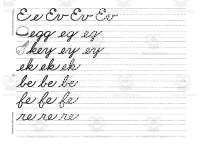 E e Ev Ev Ev
egg eg eg
key ey ey
ek ek ek
be be be
fe fe fe
re re re